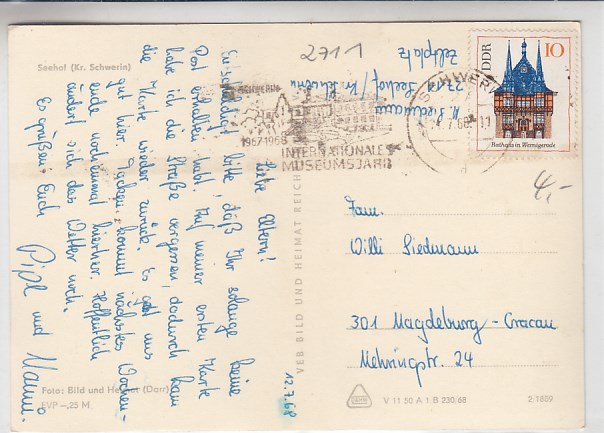 Seehof (Kr. Schwerin)
Liebe Eltern!
Entschuldigt bitte, daß Ihr solange keine
Post erhalten habt. Auf meiner ersten Karte
habe ich die Straße vergessen, dadurch kam
die Karte wieder zurück. Es geht uns
gut hier. kommt nächstes Wochen-
ende noch einmal hierher. Hoffentlich
ändert sich das Wetter noch.
Es grüßen Euch
und
Foto: Bild und Heimat (Dorr)
EVP -,25 M
12.7.68
VEB BILD UND HEIMAT REICH
2711
H. Siedmann
2711 Seehof / Kr. Schwerin
Zeltplatz
SCHWERIN
1967-1968
INTERNATIONALES
MUSEUMSJAHR
SCHWER
7.68
DDR
10
Rathaus in Wernigerode
4,-
Fam.
Willi Siedmann
301 Magdeburg-Cracau
Mehringstr. 24
V 11 50 A 1 B 230/68
2/1809